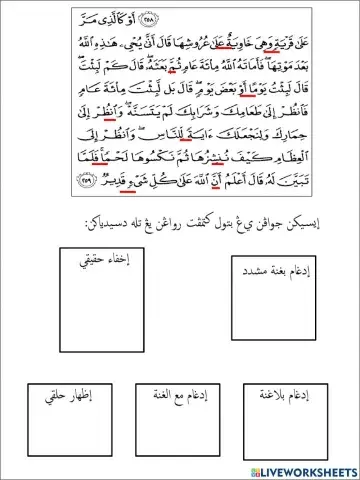 ﴿٢٥٨﴾ أَوْ كَالَّذِي مَرَّ
عَلَىٰ قَرْيَةٍ وَهِيَ خَاوِيَةٌ عَلَىٰ عُرُوشِهَا قَالَ أَنَّىٰ يُحْيِۦ هَـٰذِهِ اللَّهُ
بَعْدَ مَوْتِهَا ۖ فَأَمَاتَهُ اللَّهُ مِائَةَ عَامٍ ثُمَّ بَعَثَهُ ۖ قَالَ كَمْ لَبِثْتَ ۖ
قَالَ لَبِثْتُ يَوْمًا أَوْ بَعْضَ يَوْمٍ ۖ قَالَ بَل لَّبِثْتَ مِائَةَ عَامٍ
فَانظُرْ إِلَىٰ طَعَامِكَ وَشَرَابِكَ لَمْ يَتَسَنَّهْ ۖ وَانظُرْ إِلَىٰ
حِمَارِكَ وَلِنَجْعَلَكَ ءَايَةً لِّلنَّاسِ ۖ وَانظُرْ إِلَى
الْعِظَامِ كَيْفَ نُنشِزُهَا ثُمَّ نَكْسُوهَا لَحْمًا ۚ فَلَمَّا
تَبَيَّنَ لَهُ قَالَ أَعْلَمُ أَنَّ اللَّهَ عَلَىٰ كُلِّ شَيْءٍ قَدِيرٌ ﴿٢٥٩﴾
إيسيكن جوابن يڠ بتول كتمڤت رواڠن يڠ تله دسدياكن:
إدغام بغنة مشدد
إخفاء حقيقي
إدغام بلاغنة
إدغام مع الغنة
إظهار حلقي
LIVEWORKSHEETS